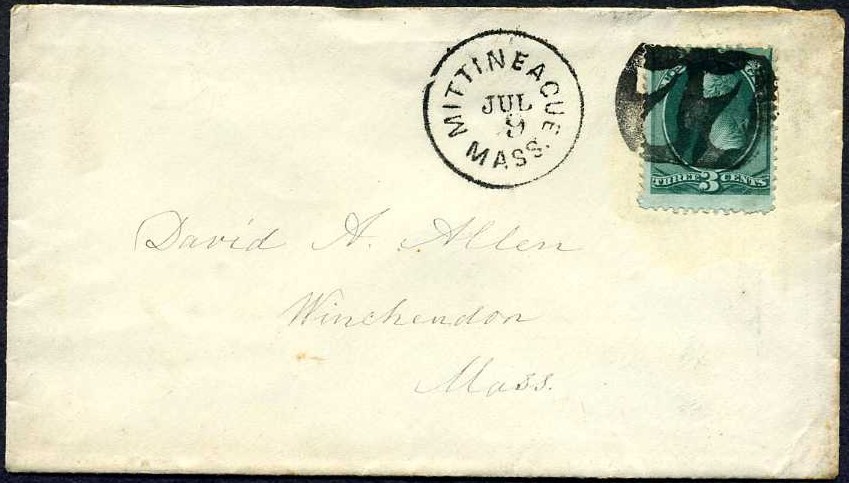 MITTINEAGUE
JUL
9
MASS.
THREE 3 CENTS
David A. Allen
Winchendon
Mass.